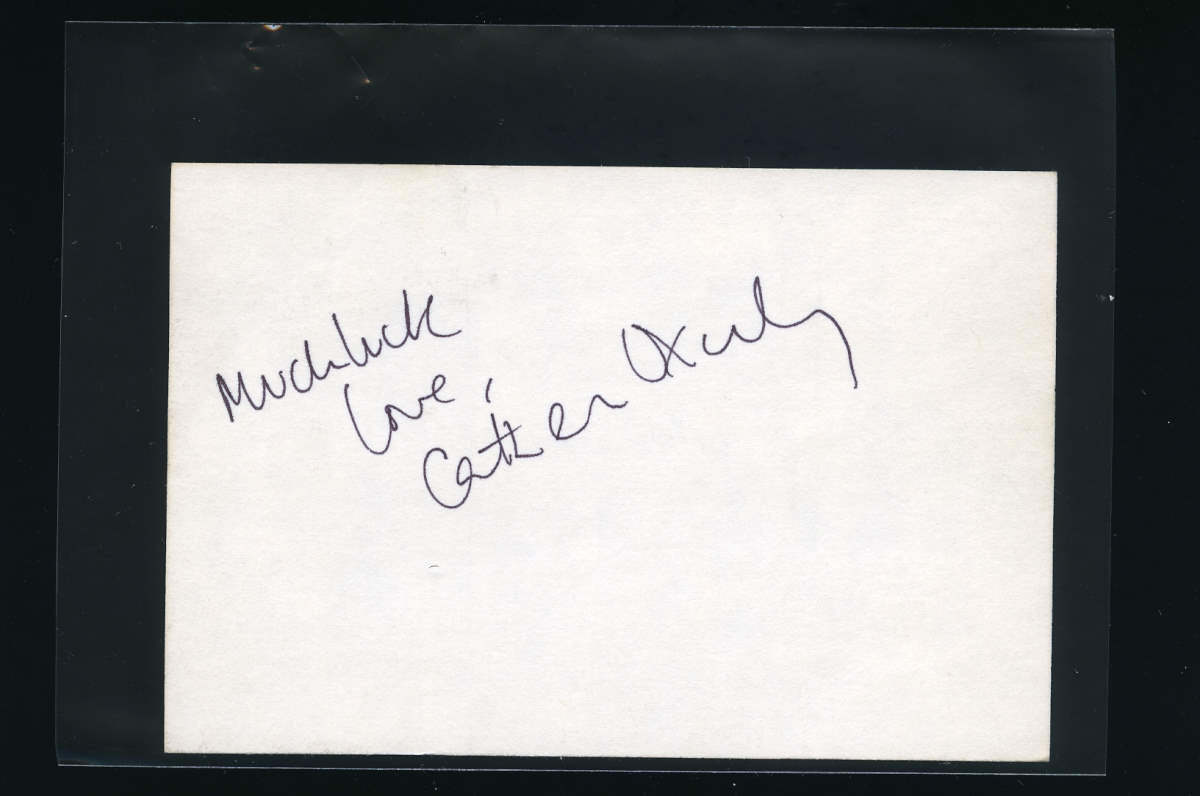 Much luck
Love,
Catherine Oxenberg